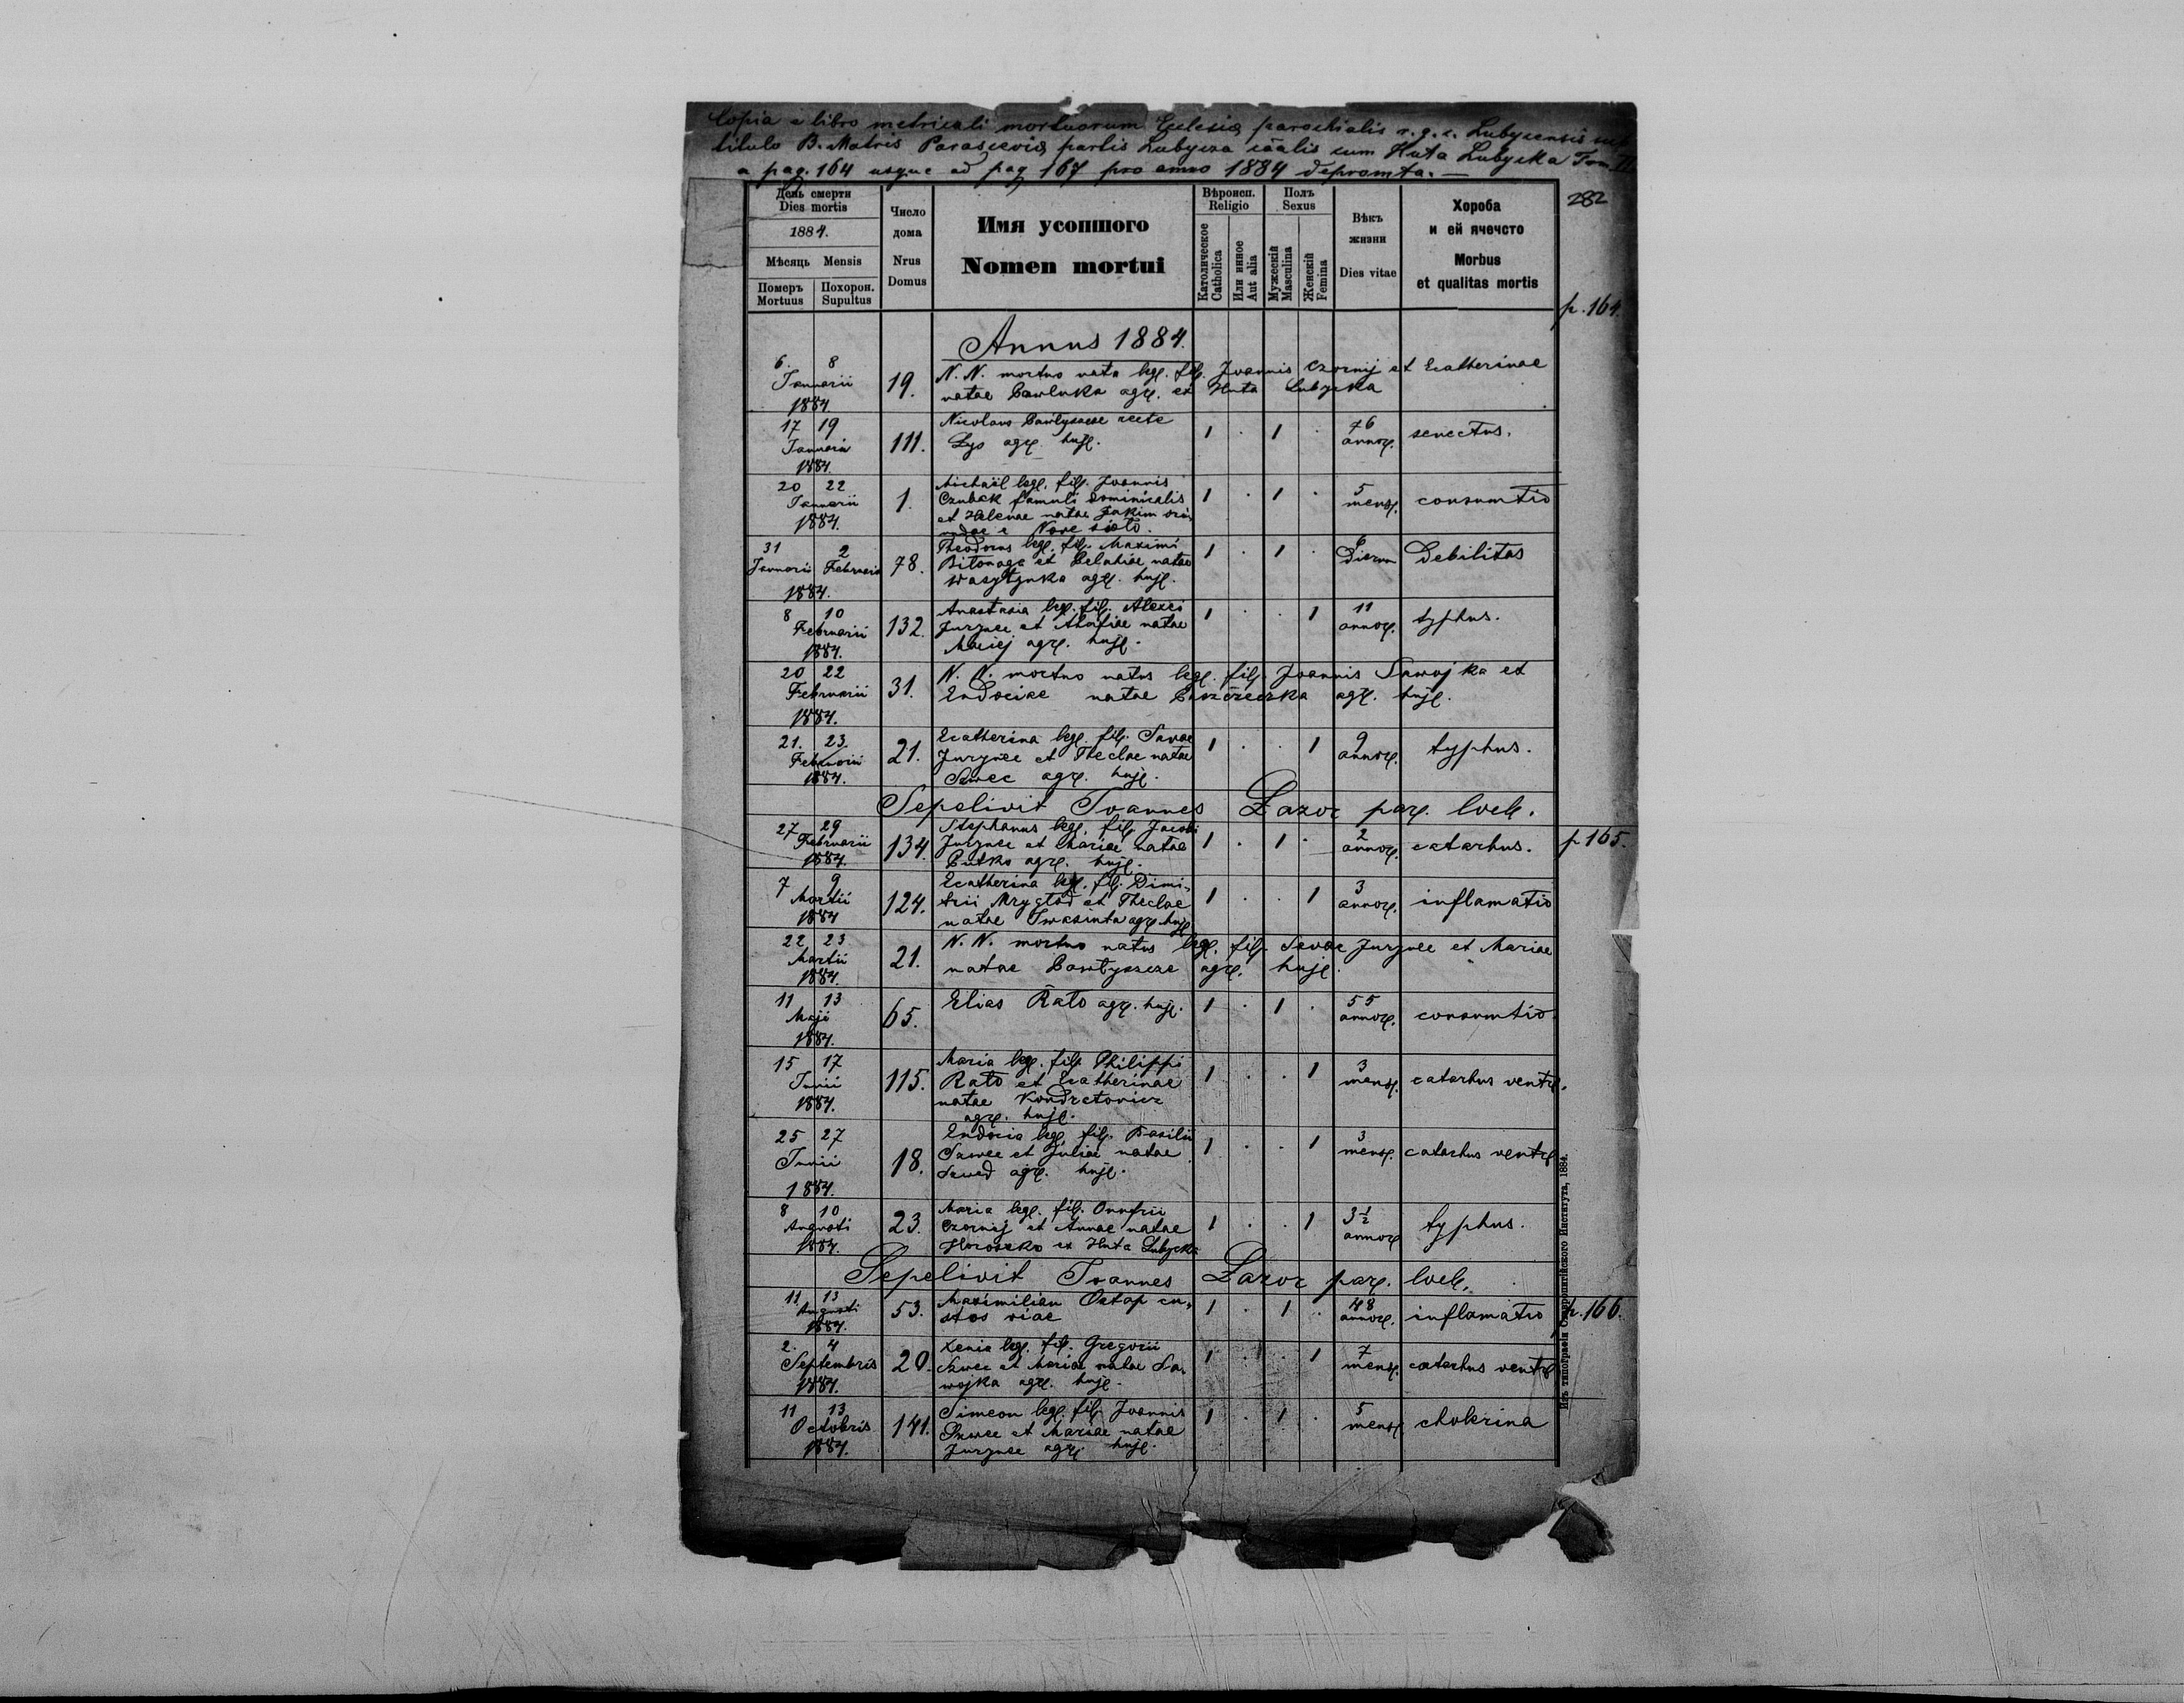 Copia e libro metricali mortuorum Eclesiae parochialis r. g. c. Lubycensis sub
titulo B. Matris Parascevia partis Lubycza cäalis cum Huta Lubycka Tom. II
a pag. 164 usque ad pag 167 pro anno 1884 depromta. —
282
День смерти
Dies mortis
1884.
Мѣсяць Mensis
Померъ Похорон.
Mortuus Supultus
Число
дома
Nrus
Domus
Имя усопшого
Nomen mortui
Вѣроисп.
Religio
Католическое
Catholica
Или инное
Aut alia
Полъ
Sexus
Мужескій
Masculina
Женскій
Femina
Вѣкъ
жизни
Dies vitae
Хороба
и ей ячечсто
Morbus
et qualitas mortis
p. 164.
Annus 1884.
6. 8
Januarii
1884.
19.
N. N. mortuo nata leg. fil. Joannis Czornij et Ecatherinae
natae Pawluka agr. ex Huta Lubycka
17 19
Januarii
1884.
111.
Nicolaus recte
Lys agr. huj.
1 . 1 .
76
annor.
senectus.
20 22
Januarii
1884.
1.
Michaël leg. fil. Joannis
Czubek famuli dominicalis
et Helenae natae Jakim
e Nove sioto.
1 . 1 .
5
mens.
consumtio
31 2
Januarii Februarii
1884.
78.
Theodorus leg. fil. Maximi
Bitonoga et Pelahiae natae
Wasytynka agr. huj.
1 . 1 .
Dierum
Debilitas
8 10
Februarii
1884.
132.
Anastasia leg. fil. Alexii
Jurynec et natae
Maciej agr. huj.
1 . . 1
11
annor.
typhus.
20 22
Februarii
1884.
31.
N. N. mortuo natus leg. fil. Joannis Sawojka et
Eudociae natae agr. huj.
21. 23.
Februarii
1884.
21.
Ecatherina leg. fil. Savae
Jurynec et Theclae natae
Szwec agr. huj.
1 . . 1
9
annor.
typhus.
Sepelivit Joannes Lazor par. loci.
27 29
Februarii
1884.
134.
Stephanus leg. fil. Jacobi
Jurynec et Mariae natae
Putko agr. huj.
1 . 1 .
2
annor.
catarhus.
p 165.
7 9
Martii
1884
124.
Ecatherina leg. fil. Dimi-
trii Mrygtod et Theclae
natae Iwasiuta agr. huj.
1 . . 1
3
annor.
inflamatio
22 23
Martii
1884.
21.
N. N. mortuo natus leg. fil. Savae Jurynec et Mariae
natae Pawtyszcze agr. huj.
11 13
Maji
1884.
65.
Elias Rato agr. huj.
1 . 1 .
55
annor.
consumtio.
15 17
Junii
1884.
115.
Maria leg. fil. Philippi
Rato et Ecatherinae
natae Kondratowicz
agr. huj.
1 . . 1
3
mens.
catarhus ventr.
25 27
Junii
1884.
18.
Eudocia leg. fil. Basilii
Szwec et Juliae natae
Szwed agr. huj.
1 . . 1
3
mens.
catarhus ventr.
8 10
Augusti
1884.
23.
Maria leg. fil. Onufrii
Czornij et Annae natae
Horoszko ex Huta Lubycka
1 . . 1
3½
annor.
typhus.
Sepelivit Joannes Lazor par. loci.
11 13
Augusti
1884.
53.
Maximilian Ostap cu-
stos viae
1 . 1 .
48
annor.
inflamatio
p. 166.
2. 4
Septembris
1884.
20.
Xenia leg. fil. Gregorii
Szwec et Mariae natae Sa-
wojka agr. huj.
1 . . 1
7
mens.
catarhus ventr.
11 13
Octobris
1884.
141.
Simeon leg. fil. Joannis
Szwec et Mariae natae
Jurynec agr. huj.
1 . 1 .
5
mens.
cholerina
Изъ типографіи Ставропигійского Института, 1884.